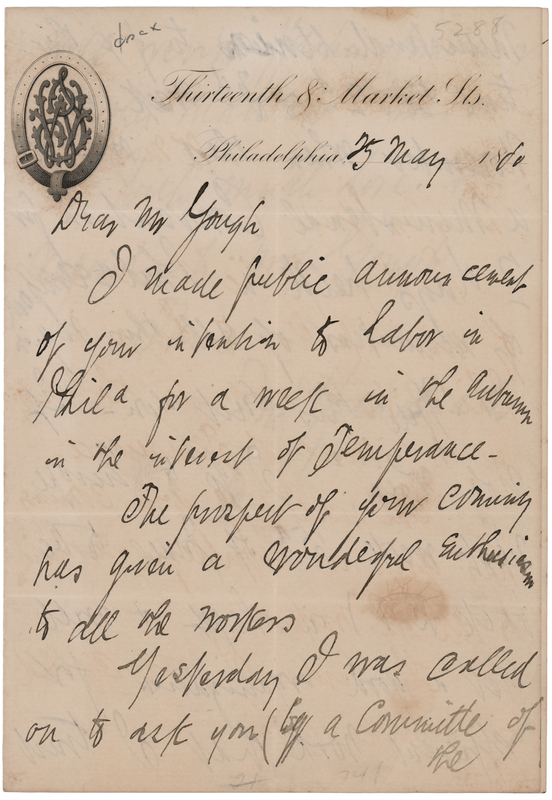 5288
Thirteenth & Market Sts.
Philadelphia, 25 May 1880
Dear Mr Gough
I made public announcement
of your intention to labor in
Phila for a week in the autumn
in the interest of Temperance -
The prospect of your coming
has given a wonderful enthusiasm
to all the workers
Yesterday I was called
on to ask you (by a Committe of
the